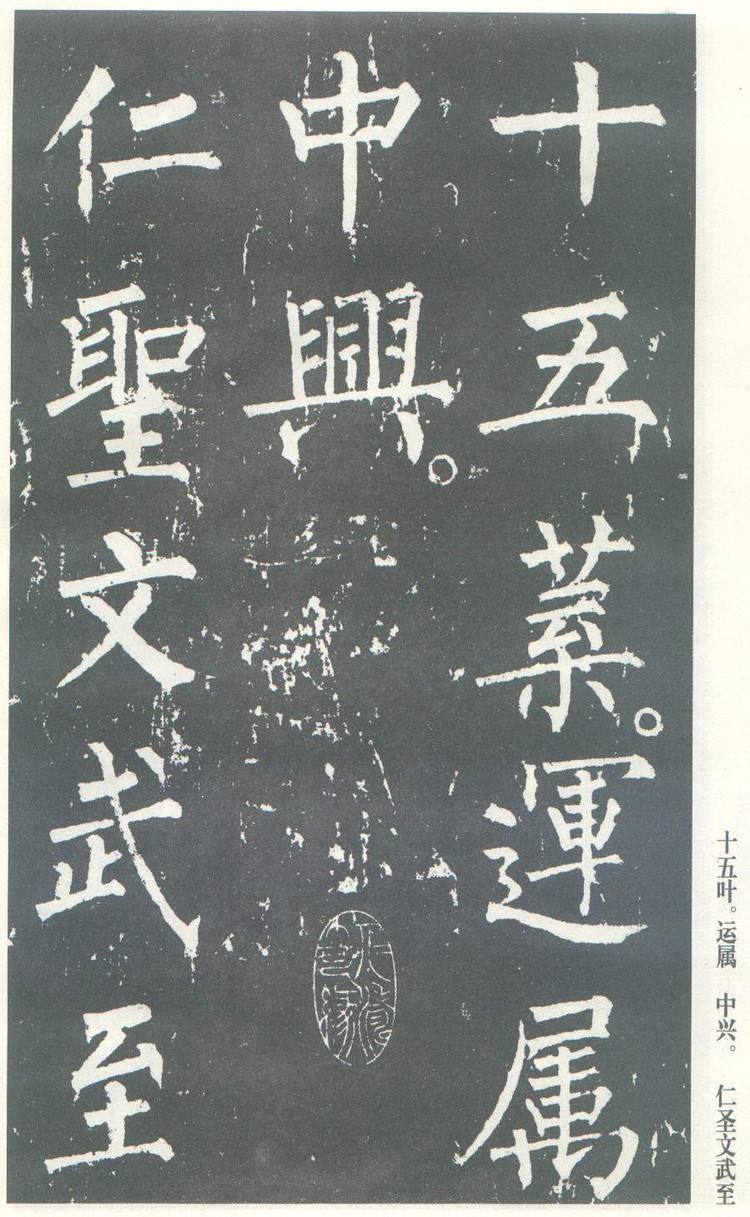 十五葉。運属
中興。
仁聖文武至
十五叶。运属 中兴。 仁圣文武至